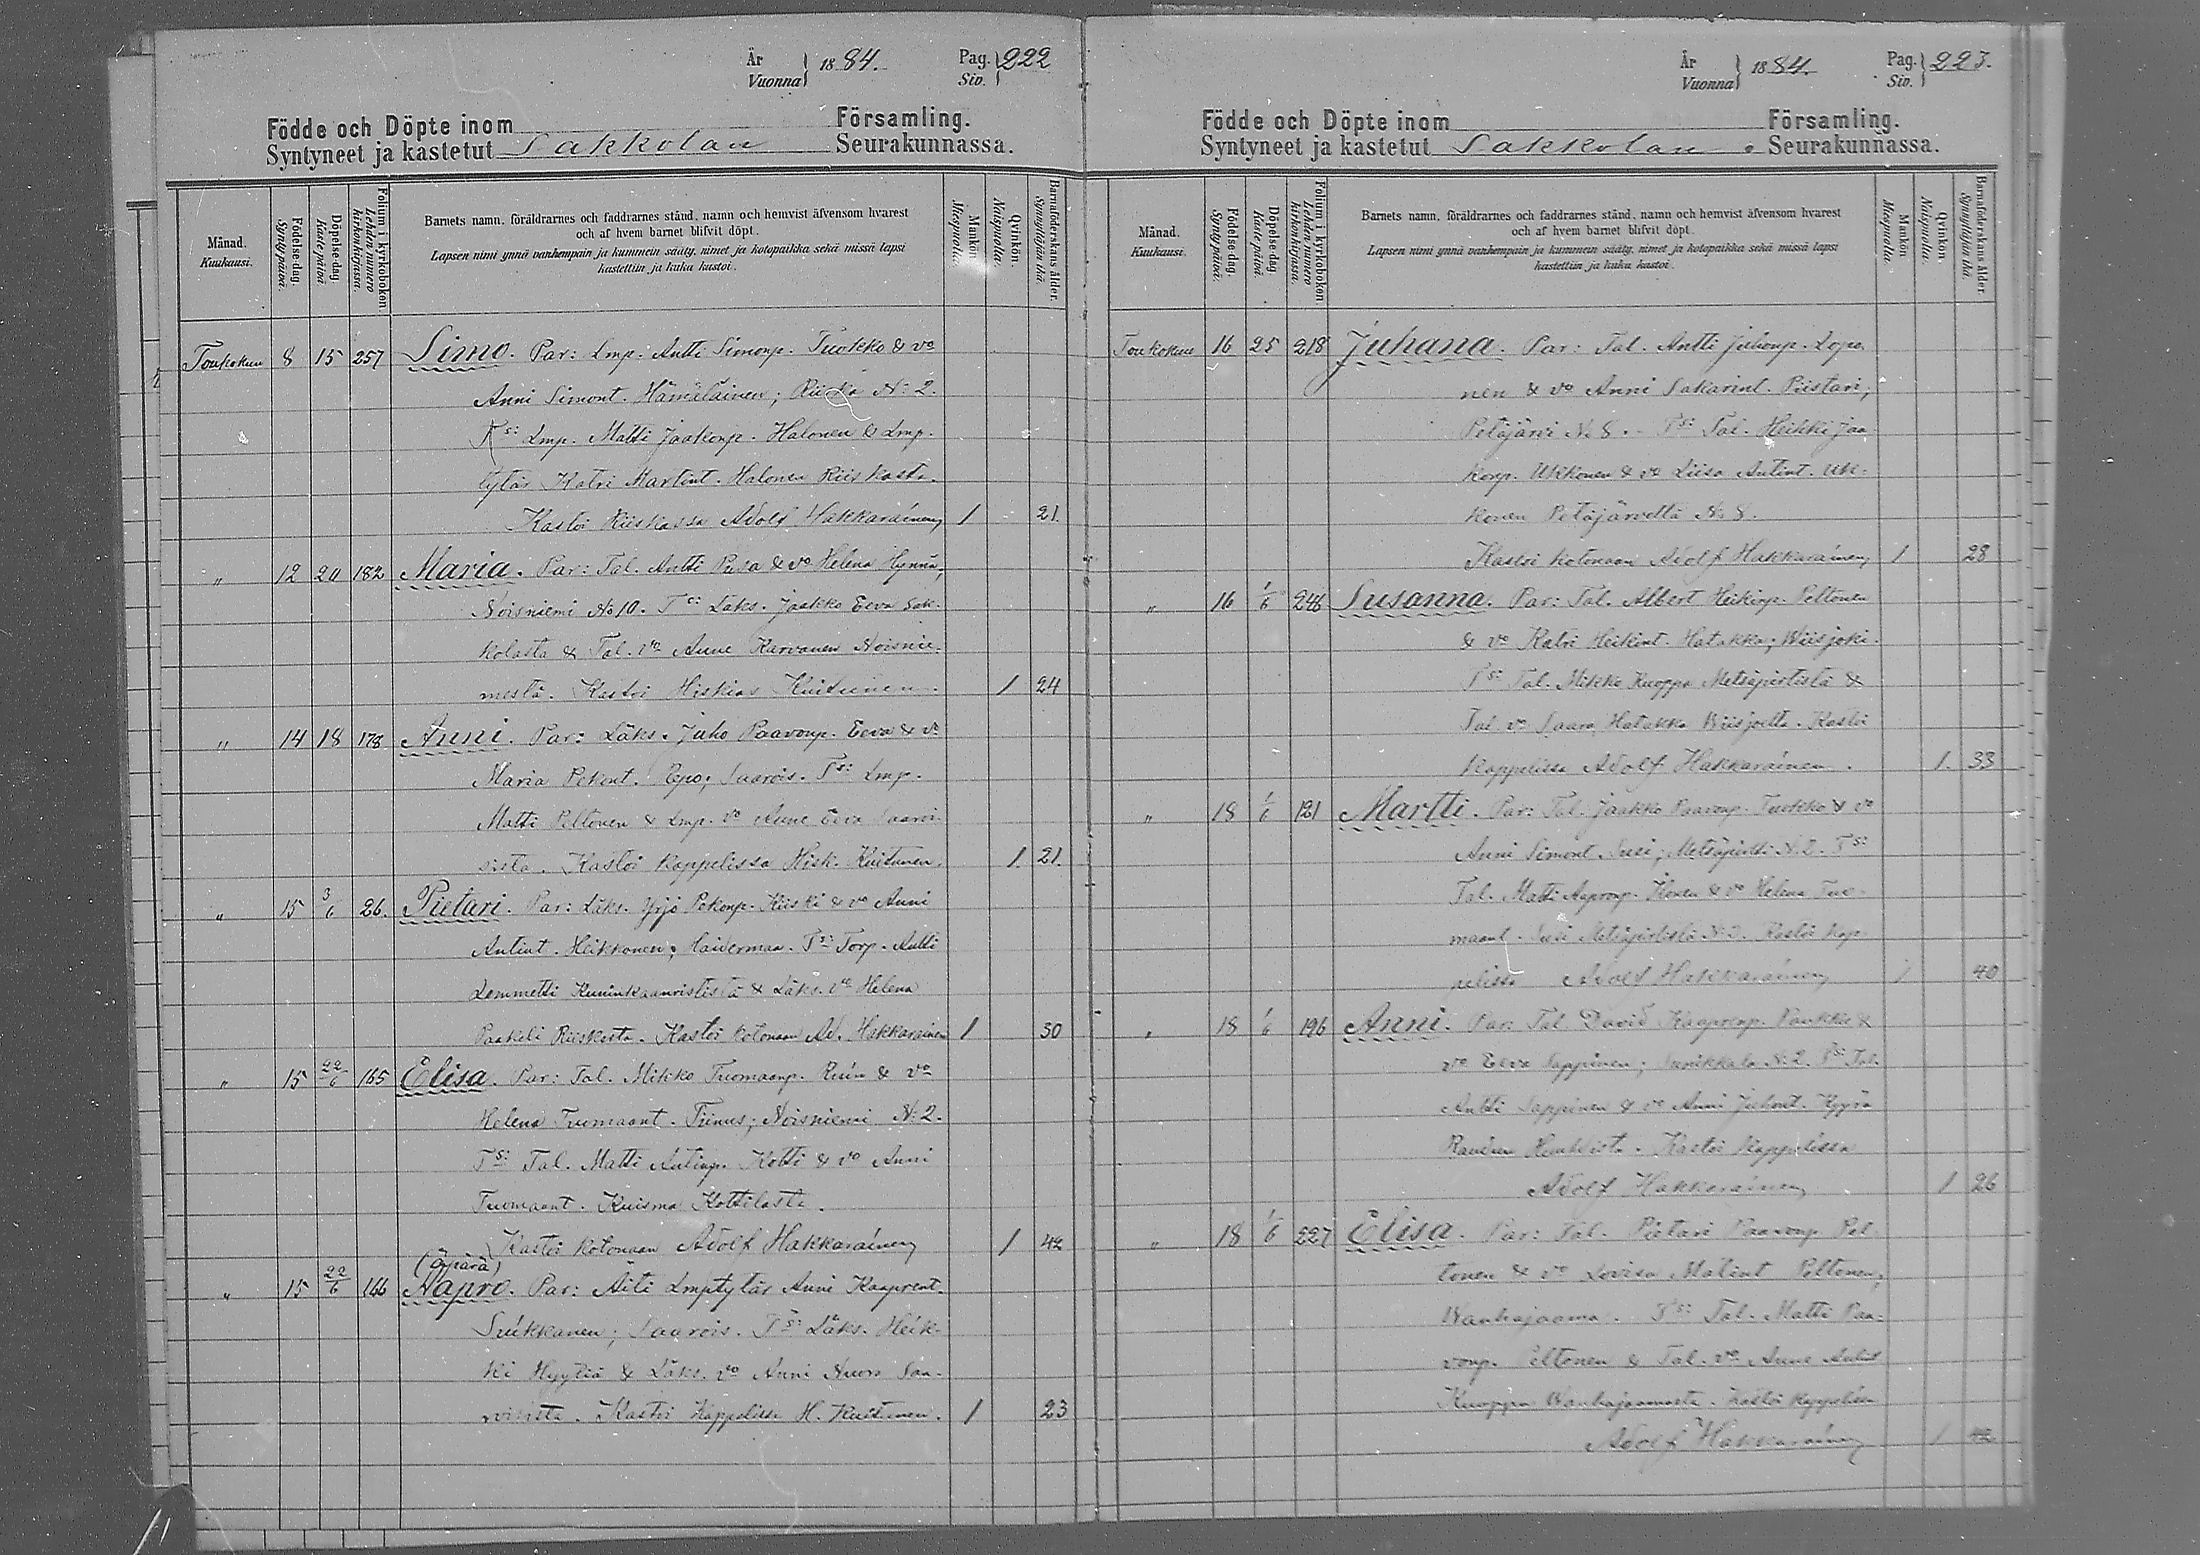 År
Vuonna } 1884.
Pag.
Siv. } 222
Födde och Döpte inom Församling.
Syntyneet ja kastetut Sakkolan Seurakunnassa.
Månad.
Kuukausi.
Födelse-dag.
Syntypäivä.
Döpelse-dag.
Kastepäivä.
Folium i kyrkoboken.
Lehden numero kirkonkirjassa.
Barnets namn, föräldrarnes och faddrarnes stånd, namn och hemvist äfvensom hvarest
och af hvem barnet blifvit döpt.
Lapsen nimi ynnä vanhempain ja kummein sääty, nimet ja kotopaikka sekä missä lapsi
kastettiin ja kuka kastoi.
Mankön.
Miespuolia.
Qvinkön.
Naispuolia.
Barnaföderskans ålder.
Synnyttäjän ikä.
Toukokuu 8 15 257 Simo. Par: Lmp. Antti Simonp. Tuokko & vo
Anni Simont. Hämäläinen; Riiska N:2.
Tsi Lmp. Matti Jaakonp. Halonen & Lmp.
tytär Katri Martint. Halonen Riiskasta.
Kastoi Riiskassa Adolf Hakkarainen 1 21.
" 12 20 182 Maria. Par: Tal. Antti Pusa & vo Helena Hynnä,
Noisniemi No 10. Tsi Läks. Jaakko Eeva Sak-
kolasta & Tal. vo Anne Karvanen Noisnie-
mestä. Kastoi Hiskias Kuitunen. 1 24
" 14 18 178 Anni. Par: Läks. Juho Paavonp. Eeva & vo
Maria Pekont. Repo; Saarois. Tsi Lmp.
Matti Peltonen & Lmp. vo Anne Eeva Saaroi-
sista. Kastoi Kappelissa Hisk. Kuitunen. 1 21.
" 15 3/6 26. Pietari. Par: Läks. Yrjö Pekonp. Kiiski & vo Anni
Antint. Heikkonen; Haiderman. Tsi Torp. Antti
Lemmetti Kuninkaanrististä & Läks. vo Helena
Paakeli Riiskasta. Kastoi kotonaan Ad. Hakkarainen 1 30
" 15 22/6 165 Elisa. Par: Tal. Mikko Tuomaanp. Ruin & vo
Helena Tuomaant. Tiinus; Noisniemi N:2.
Tsi Tal. Matti Antinp. Kotti & vo Anni
Tuomaant. Kuisma Kottilasta.
Kastoi kotonaan Adolf Hakkarainen 1 42
(äpärä)
" 15 22/6 166 Aapro. Par: Äiti Lmptytär Anni Kaaprent.
Suikkanen; Saarois. Tsi Läks. Heik-
ki Hyytiä & Läks. vo Anni Nuora Saa-
roisista. Kastoi Kappelissa H. Kuitunen. 1 23
År
Vuonna } 1884.
Pag.
Siv. } 223.
Födde och Döpte inom Församling.
Syntyneet ja kastetut Sakkolan Seurakunnassa.
Månad.
Kuukausi.
Födelse-dag.
Syntypäivä.
Döpelse-dag.
Kastepäivä.
Folium i kyrkoboken.
Lehden numero kirkonkirjassa.
Barnets namn, föräldrarnes och faddrarnes stånd, namn och hemvist äfvensom hvarest
och af hvem barnet blifvit döpt.
Lapsen nimi ynnä vanhempain ja kummein sääty, nimet ja kotopaikka sekä missä lapsi
kastettiin ja kuka kastoi.
Mankön.
Miespuolia.
Qvinkön.
Naispuolia.
Barnaföderskans ålder.
Synnyttäjän ikä.
Toukokuu 16 25 218 Juhana. Par: Tal. Antti Juhonp. Lopo-
nen & vo Anni Sakarint. Piistari;
Petäjärvi N:8. Tsi Tal. Heikki Jaa-
konp. Ukkonen & vo Liisa Antint. Uk-
konen Petäjärveltä N:8.
Kastoi kotonaan Adolf Hakkarainen 1 28
" 16 1/6 248 Susanna. Par: Tal. Albert Heikinp. Peltonen
& vo Katri Heikint. Hatakka; Wiisjoki.
Tsi Tal. Mikko Kuoppa Metsäpirtistä &
Tal. vo Saara Hatakka Wiisjoelta. Kastoi
Kappelissa Adolf Hakkarainen. 1. 33
" 18 1/6 121 Martti. Par: Tal. Jaakko Paavonp. Tuokko & vo
Anni Simont. Susi; Metsäpirtti N:2. Tsi
Tal. Matti Aapronp. Konen & vo Helena Tuo-
maant. Susi Metsäpirtistä N:2. Kastoi Kap-
pelissa Adolf Hakkarainen 1 40
" 18 1/6 196 Anni. Par: Tal. David Kaaprenp. Paukku &
vo Eeva Sappinen; N:2. Tsi Tal.
Antti Sappinen & vo Anni Juhont.
Kastoi Kappelissa
Adolf Hakkarainen 1 26
" 18 1/6 227 Elisa. Par: Tal. Pietari Paavonp. Pel-
tonen & vo Lovisa Matint. Peltonen;
Wanhajaama. Tsi Tal. Matti Paa-
vonp. Peltonen & Tal. vo Anne Antint.
Kuoppa Wanhajaamasta. Kastoi Kappelissa
Adolf Hakkarainen 1 42